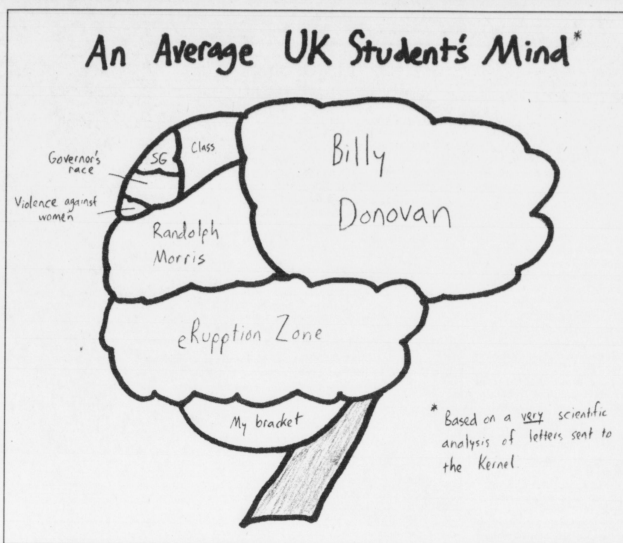 An Average UK Student's Mind*
Governor's
race
SG
Class
Violence against
women
Billy
Donovan
Randolph
Morris
eRupption Zone
My bracket
* Based on a very scientific
analysis of letters sent to
the Kernel